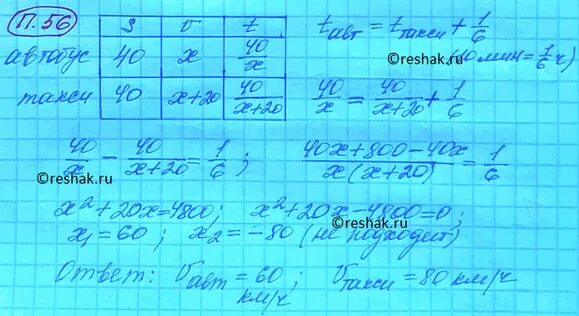 П.56
S v t
автобус 40 x 40/x
такси 40 x+20 40/(x+20)
t авт = t такси + 1/6
©reshak.ru
(10 мин = 1/6 ч)
40/x = 40/(x+20) + 1/6
©reshak.ru
40/x − 40/(x+20) = 1/6 ; (40x+800−40x)/(x(x+20)) = 1/6
©reshak.ru
©reshak.ru
x²+20x=4800; x²+20x−4800=0;
x₁=60 ; x₂=−80 (не подходит)
©reshak.ru
Ответ: v авт = 60 км/ч ; v такси = 80 км/ч